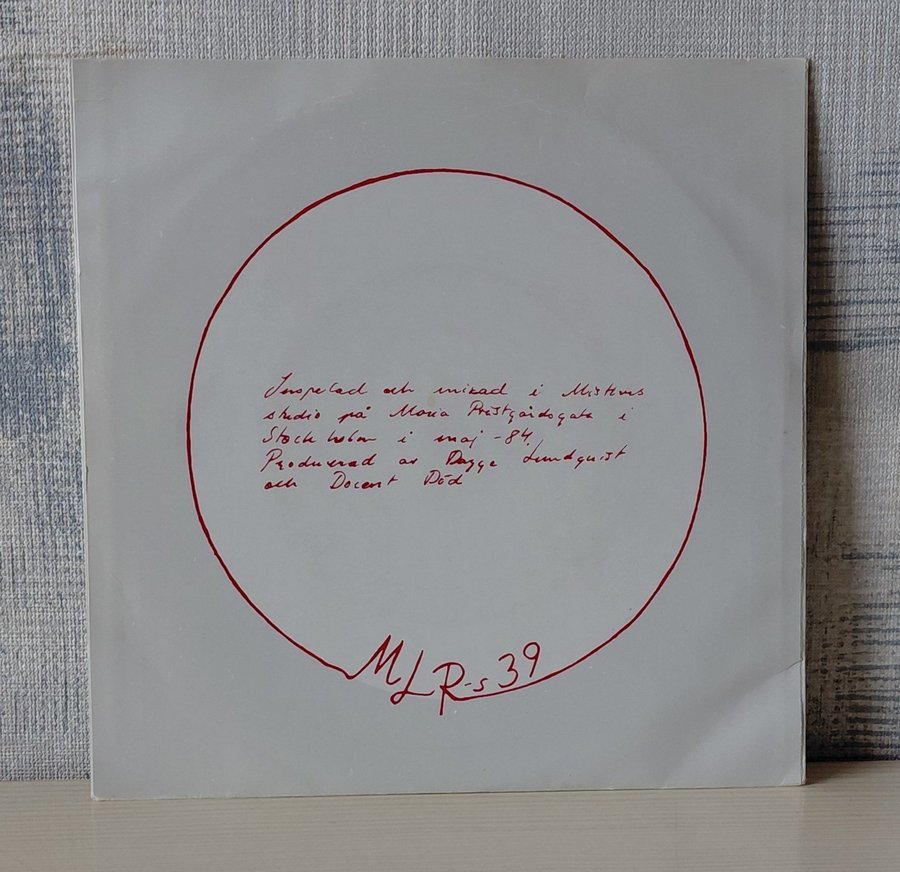 Inspelad och mixad i Mistlurs
studio på Maria Prästgårdsgata i
Stockholm i maj -84.
Producerad av Dagge Lundquist
och Docent Död
MLR-s 39